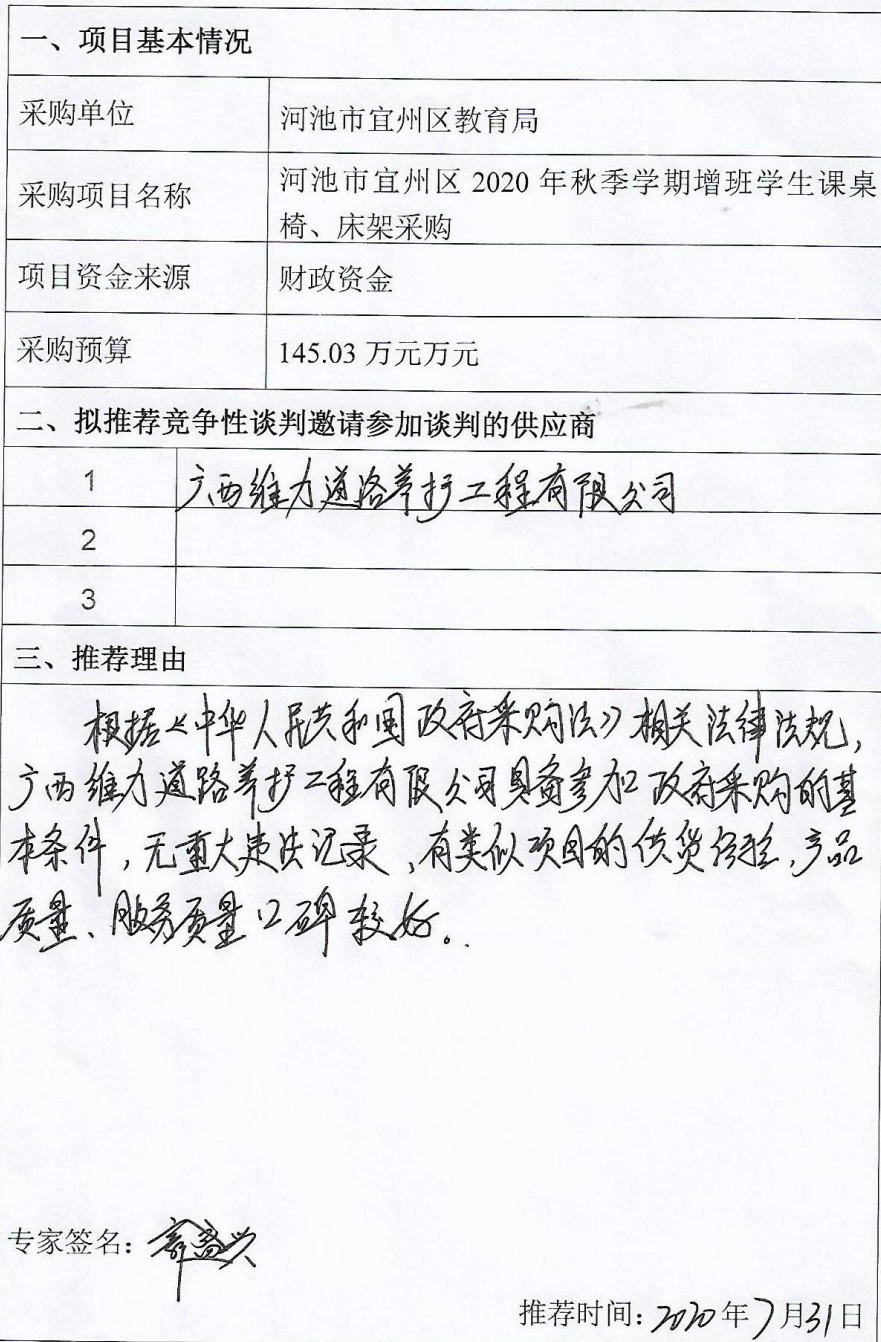 一、项目基本情况
采购单位
河池市宜州区教育局
采购项目名称
河池市宜州区 2020 年秋季学期增班学生课桌
椅、床架采购
项目资金来源
财政资金
采购预算
145.03 万元万元
二、拟推荐竞争性谈判邀请参加谈判的供应商
1
广西维力道路养护工程有限公司
2
3
三、推荐理由
根据《中华人民共和国政府采购法》相关法律法规,
广西维力道路养护工程有限公司具备参加政府采购的基
本条件,无重大违法记录,有类似项目的供货经验,产品
质量、服务质量口碑较好。
专家签名:
推荐时间:2020年7月31日